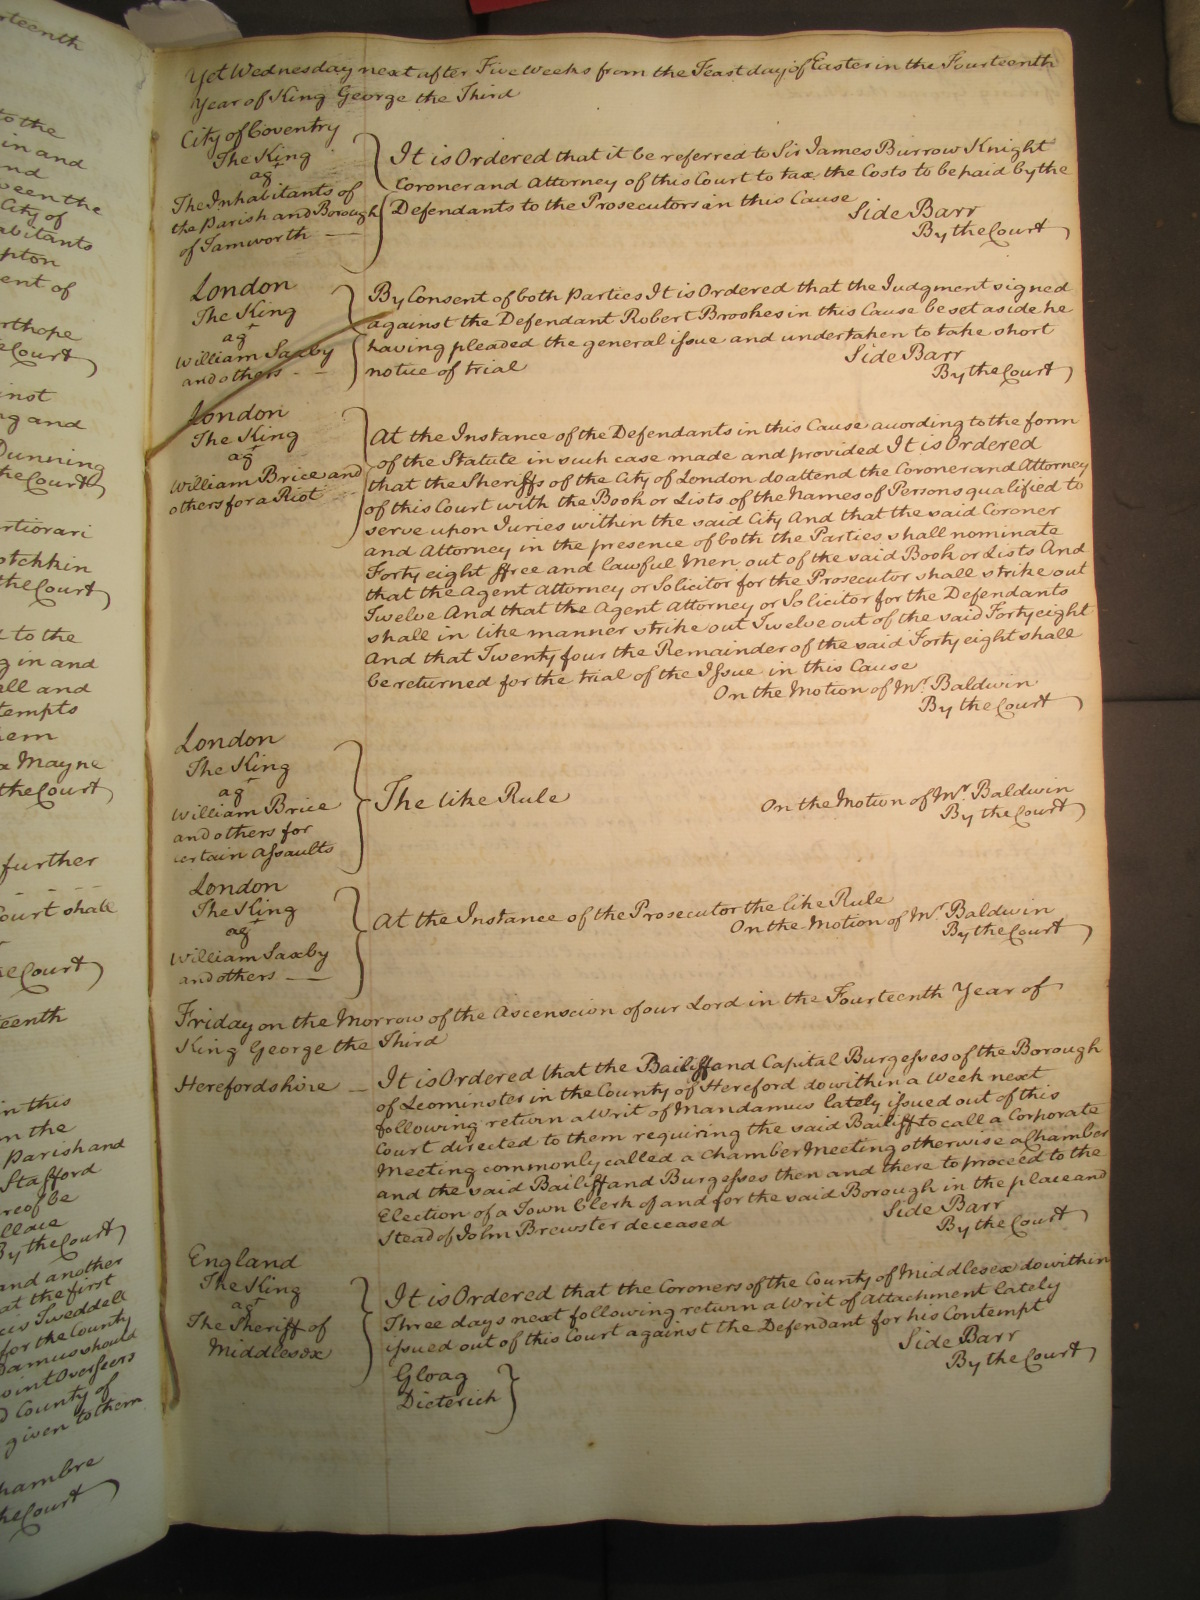 Yet Wednesday next after Five Weeks from the Feast day of Easter in the Fourteenth
Year of King George the Third
City of Coventry
The King
agt
The Inhabitants of
the Parish and Borough
of Tamworth
It is Ordered that it be referred to Sir James Burrow Knight
Coroner and Attorney of this Court to tax the Costs to be paid by the
Defendants to the Prosecutors in this Cause
Side Barr
By the Court
London
The King
agt
William Saxby
and others
By Consent of both Parties It is Ordered that the Judgment signed
against the Defendant Robert Brookes in this Cause be set aside he
having pleaded the general issue and undertaken to take short
notice of trial
Side Barr
By the Court
London
The King
agt
William Brice and
others for a Riot
At the Instance of the Defendants in this Cause according to the form
of the Statute in such case made and provided It is Ordered
that the Sheriffs of the City of London do attend the Coroner and Attorney
of this Court with the Book or Lists of the Names of Persons qualified to
serve upon Juries within the said City And that the said Coroner
and Attorney in the presence of both the Parties shall nominate
Forty eight ffree and lawful Men out of the said Book or Lists And
that the Agent Attorney or Solicitor for the Prosecutor shall strike out
Twelve And that the Agent Attorney or Solicitor for the Defendants
shall in like manner strike out Twelve out of the said Forty eight
And that Twenty four the Remainder of the said Forty eight shall
be returned for the trial of the Issue in this Cause
On the Motion of Mr. Baldwin
By the Court
London
The King
agt
William Brice
and others for
certain Assaults
The like Rule
On the Motion of Mr. Baldwin
By the Court
London
The King
agt
William Saxby
and others
At the Instance of the Prosecutor the like Rule
On the Motion of Mr. Baldwin
By the Court
Friday on the Morrow of the Ascenscion of our Lord in the Fourteenth Year of
King George the Third
Herefordshire
It is Ordered that the Bailiff and Capital Burgesses of the Borough
of Leominster in the County of Hereford do within a Week next
following return a Writ of Mandamus lately issued out of this
Court directed to them requiring the said Bailiff to call a Corporate
Meeting commonly called a Chamber Meeting otherwise a Chamber
and the said Bailiff and Burgesses then and there to proceed to the
Election of a Town Clerk of and for the said Borough in the place and
Stead of John Brewster deceased
Side Barr
By the Court
England
The King
agt
The Sheriff of
Middlesex
It is Ordered that the Coroners of the County of Middlesex do within
Three days next following return a Writ of Attachment lately
issued out of this Court against the Defendant for his Contempt
Side Barr
By the Court
Gloag
Dieterich